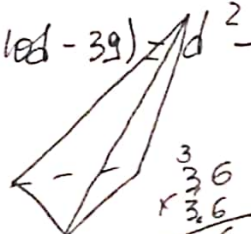 10d - 39) = d² -
3
3,6
× 3,6